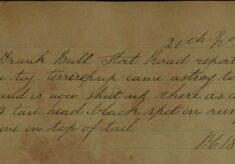 26th
Frank Bull Hort Road report
toy terrier pup came astray to
and is now shut up there as a
tan head black spot on rum
one on top of tail